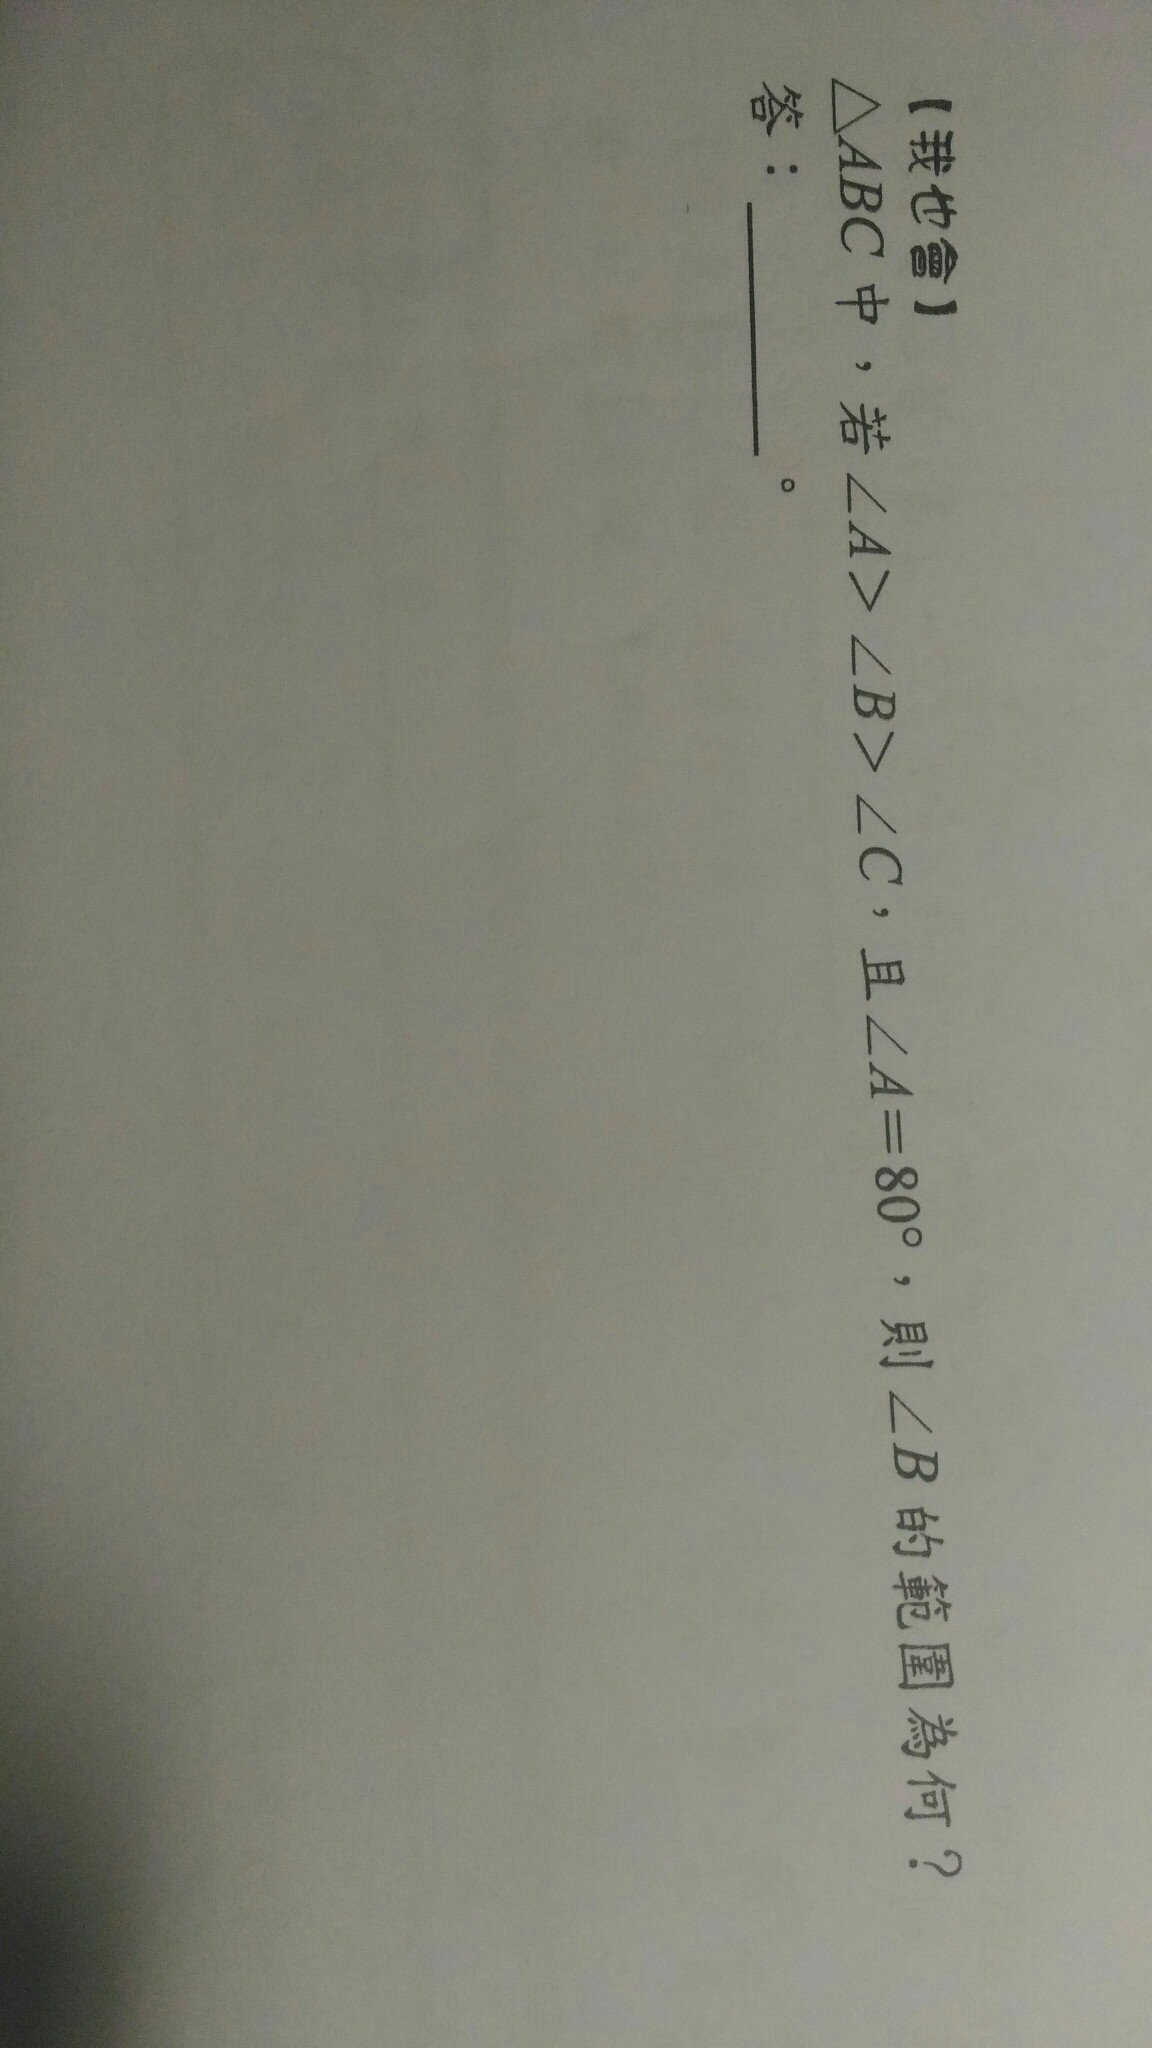 【我也會】
△ABC 中，若∠A＞∠B＞∠C，且∠A＝80°，則∠B 的範圍為何？
答：________。